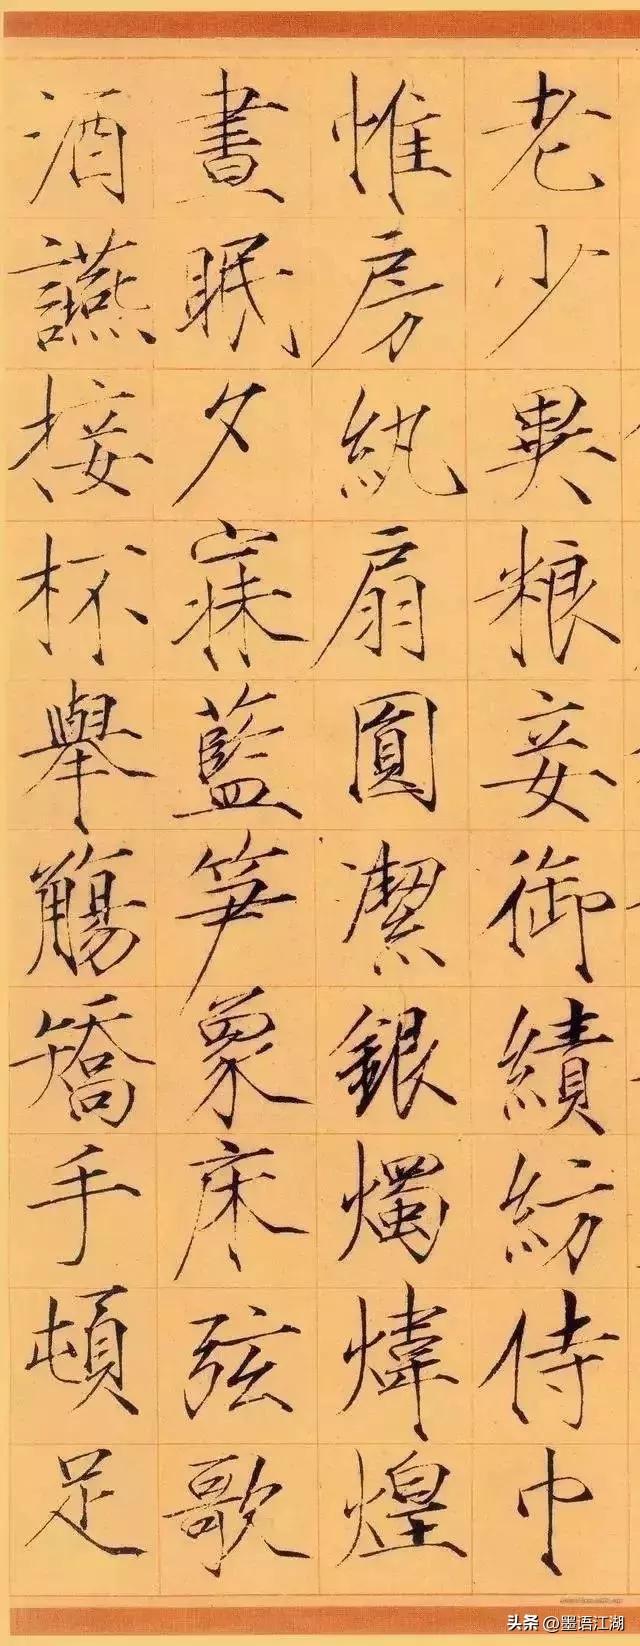 老少異粮妾御績紡侍巾
帷房紈扇圓潔銀燭煒煌
晝眠夕寐藍笋象床弦歌
酒讌接杯舉觴矯手頓足
头条 @墨语江湖